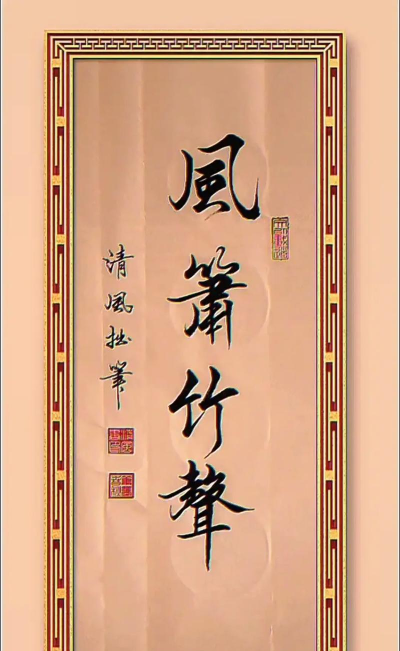 風簫竹聲
清風拙筆